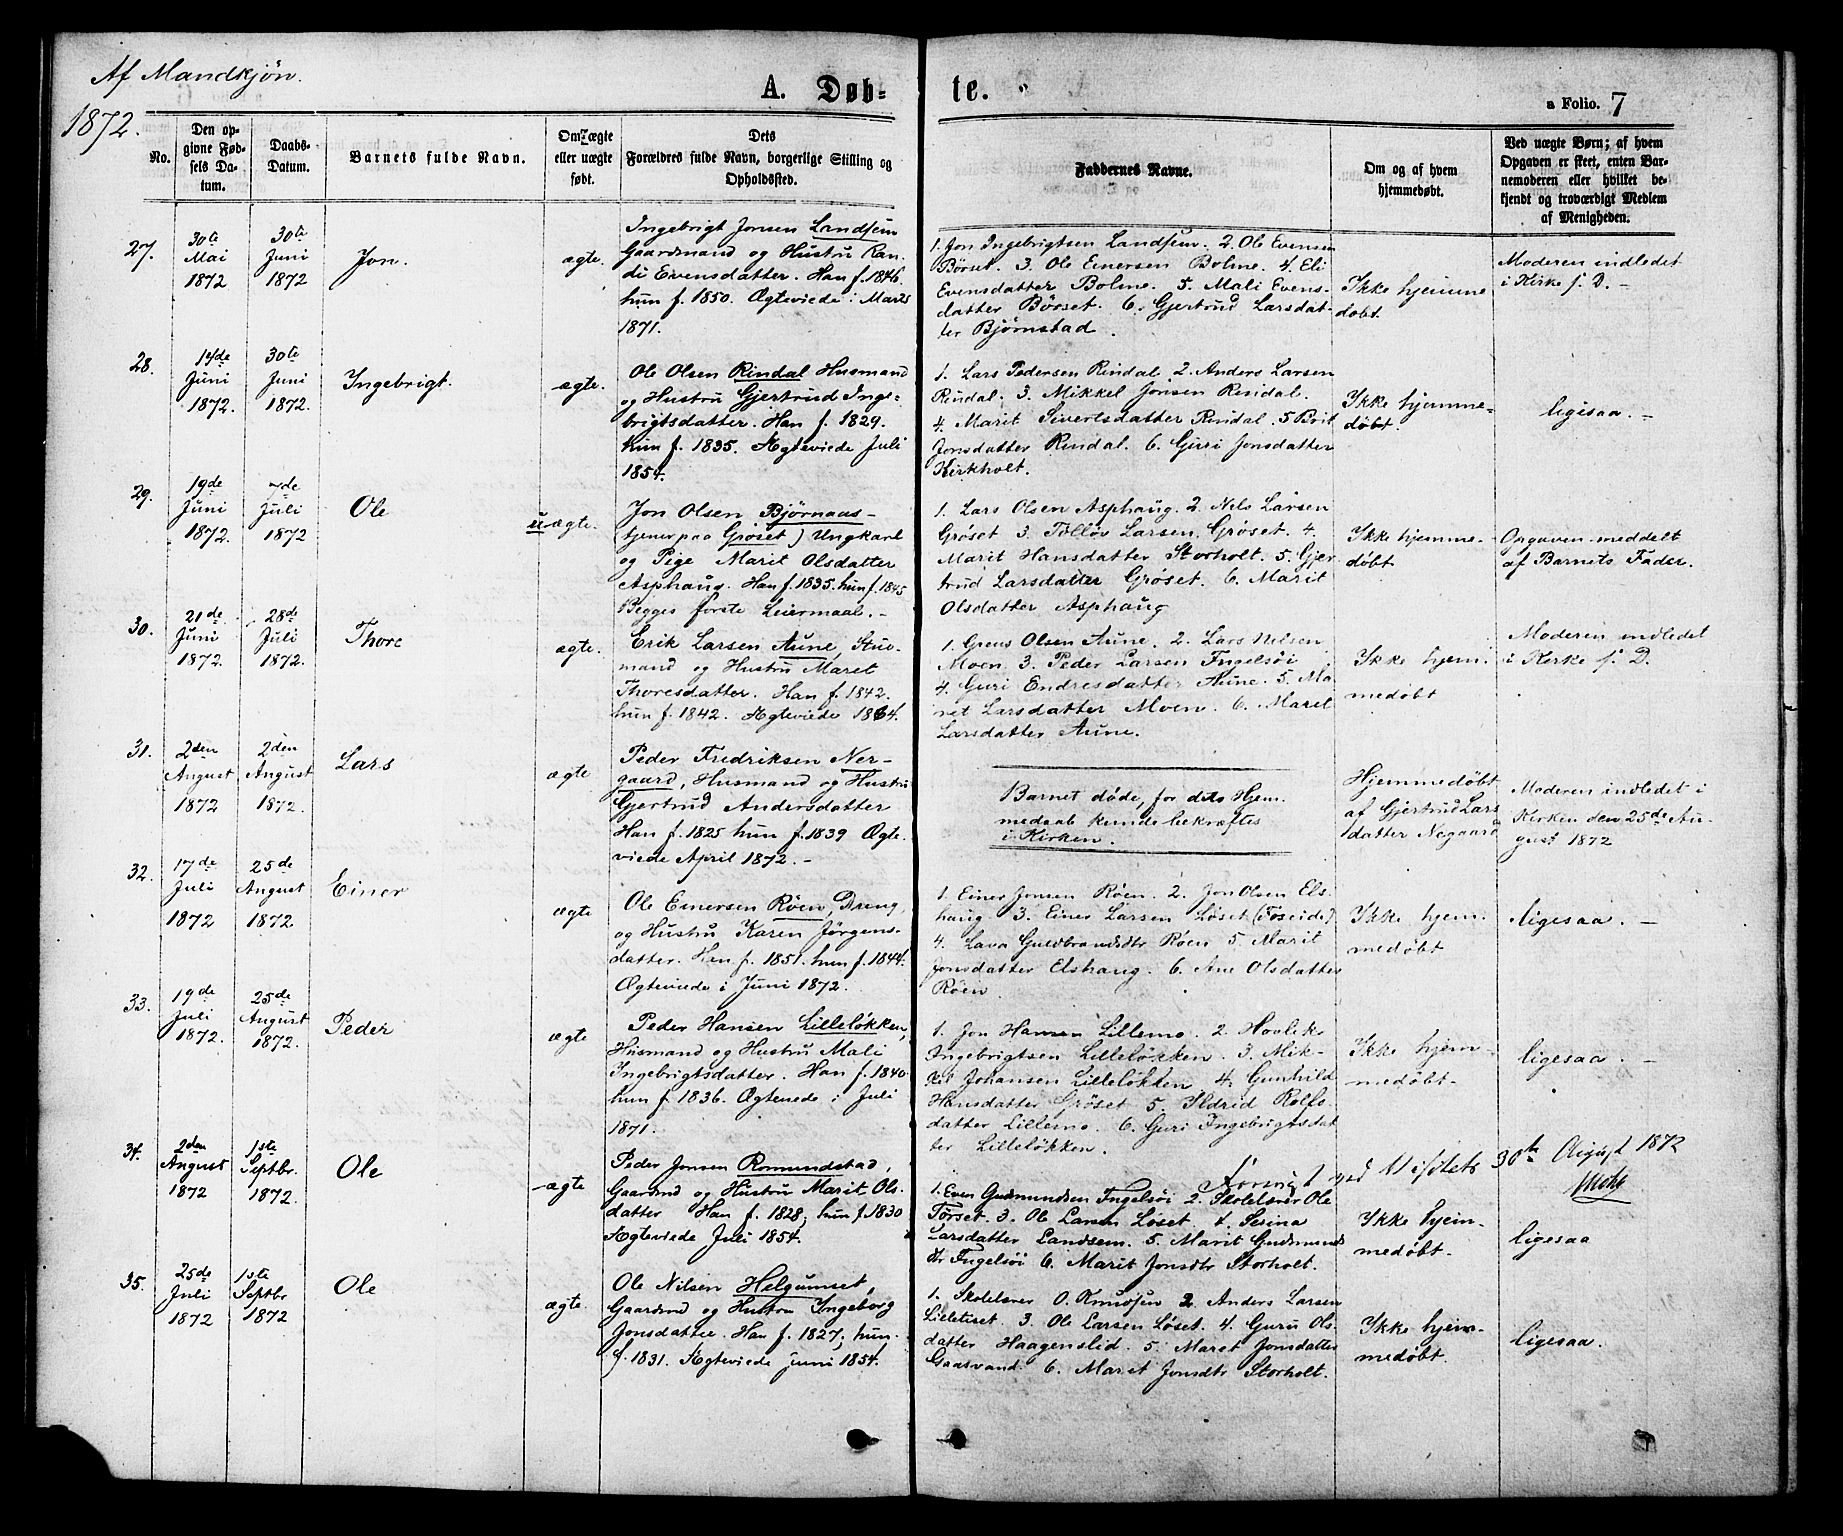 Af Mandkjøn.
1872.
A. Døb-
te.
a Folio. 7
No.
Den op-
givne Fød-
sels Da-
tum.
Daabs-
Datum.
Barnets fulde Navn.
Om ægte
eller uægte
født.
Dets
Forældres fulde Navn, borgerlige Stilling og
Opholdssted.
Faddernes Navne.
Om og af hvem
hjemmedøbt.
Ved uægte Børn; af hvem
Opgaven er skeet, enten Bar-
nemoderen eller hvilket be-
kjendt og troværdigt Medlem
af Menigheden.
27.
30te
Mai
1872
30te
Juni
1872
Jon.
ægte.
Ingebrigt Jonsen Landsem
Gaardmand og Hustru Ran-
di Evensdatter. Han f. 1846.
hun f. 1850. Ægteviede i Marts
1871.
1. Jon Ingebrigtsen Landsem. 2. Ole Evensen
Børset. 3. Ole Einersen Bolme. 4. Eli
Evensdatter Bolme. 5. Mali Evens-
datter Børset. 6. Gjertrud Larsdat-
ter Bjørnstad.
Ikke hjemme
døbt.
Moderen indledet
i Kirke s. D. -
28.
14de
Juni
1872.
30te
Juni
1872.
Ingebrigt.
ægte.
Ole Olsen Rindal Husmand
og Hustru Gjertrud Inge-
brigtsdatter. Han f. 1829.
hun f. 1835. Ægteviede Juli
1854.
1. Lars Pedersen Rindal 2. Anders Larsen
Rindal. 3. Mikkel Jonsen Rindal.
4. Marit Sivertsdatter Rindal. 5 Brit
Jonsdatter Rindal. 6. Guri Jonsdatter
Kirkholt.
Ikke hjemme-
døbt.
ligesaa. -
29.
19de
Juni
1872.
7de
Juli
1872
Ole
uægte.
Jon Olsen Bjørnaas-
(tjener paa Grøset) Ungkarl
og Pige Marit Olsdatter
Asphaug. Han f. 1835. hun f. 1845
Begges første Leiermaal. -
1. Lars Olsen Asphaug. 2. Nels Larsen
Grøset 3. Tolløv Larsen Grøset. 4.
Marit Hansdatter Storholt. 5. Gjer
trud Larsdatter Grøset. 6. Marit
Olsdatter Asphaug
Ikke hjemme-
døbt
Opgaven meddelt
af Barnets Fader.
30.
21de
Juni
1872.
28de
Juli
1872.
Thore
ægte.
Erik Larsen Aune, Huus-
mand og Hustru Maret
Thoresdatter. Han f. 1842.
hun f. 1842. Ægteviede 1864.
1. Olsen Aune. 2. Lars Nelsen
Moen. 3. Peder Larsen Fugelsøi
4. Guri Endresdatter Aune. 5. Ma-
ret Larsdatter Moen. 6. Maret
Larsdatter Aune.
Ikke hjem.
medøbt
Moderen indledet
i Kirke s. D.
31.
2den
August
1872
2den
August
1872.
Lars
ægte
Peder Fredriksen Ner-
gaard, Husmand og Hustru
Gjertrud Andersdatter
Han f. 1825 hun f. 1839 Ægte-
viede April 1872. -
Barnet døde, før dets Hjem-
medaab kunde bekræftes
i Kirken.
Hjemmedøbt
af Gjertrud Lars
datter Negaard
Moderen indledet i
Kirken den 25de Au-
gust 1872
32.
17de
Juli
1872
25de
August
1872
Einer
ægte
Ole Einersen Røen, Dreng,
og Hustru Karen Jørgens-
datter. Han f. 1851. hun f. 1844.
Ægteviede i Juni 1872.
1. Einer Jonsen Røen. 2. Jon Olsen Els-
haug 3. Einer Larsen Løset (Foseide)
4. Lava Guldbrandsdtr Røen 5. Marit
Jonsdatter Elshaug. 6. Ane Olsdatter
Røen.
Ikke hjem.
medøbt
ligesaa. -
33.
19de
Juli
1872.
25de
August
1872.
Peder
ægte
Peder Hansen Lilleløkken,
Husmand og Hustru Mali
Ingebrigtsdatter. Han f. 1840.
hun f. 1836. Ægteviede i Juli
1871.
1. Jon Hansen Lillemo. 2. Hovlek
Ingebrigtsen Lilleløkken. 3. Mik-
kel Johansen Lilleløkken, 4. Gunhild
Hansdatter Grøset 5. Ildrid Rolfs-
datter Lillemo. 6. Guri Ingebrigtsdat
ter Lilleløkken.
Ikke hjem-
medøbt.
ligesaa. -
34.
2den
August
1872
1ste
Septbr.
1872.
Ole
ægte
Peder Jonsen Romundstad,
Gaardmd og Hustru Marit Ols-
datter Han f. 1828; hun f. 1830
Ægteviede Juli 1854.
ved Visitats 30te August 1872
1. Even Gudmundsen Fugelsøi 2. Skolelærer Ole
Tørset. 3. Ole Larsen Løset. 4. Serina
Larsdatter Landsem. 5. Marit Gudmunds
dtr Fugelsøi 6. Marit Jonsdtr Storholt.
Ikke hjem-
medøbt.
ligesaa
35.
25de
Juli
1872
1ste
Septbr
1872
Ole
ægte.
Ole Nilsen Helgumset,
Gaardmd og Hustru Ingeborg
Jonsdatter. Han f. 1827, hun
f. 1831. Ægteviede juni 1854.
1. Skolelærer O. Knudsen 2. Anders Larsen
Lilletiset. 3. Ole Larsen Løset. 4. Guru Ols-
datter Haagenslid. 5. Maret Jonsdatter
Gaasvand. 6. Marit Jonsdtr Storholt.
Ikke hjem-
medøbt.
ligesaa.